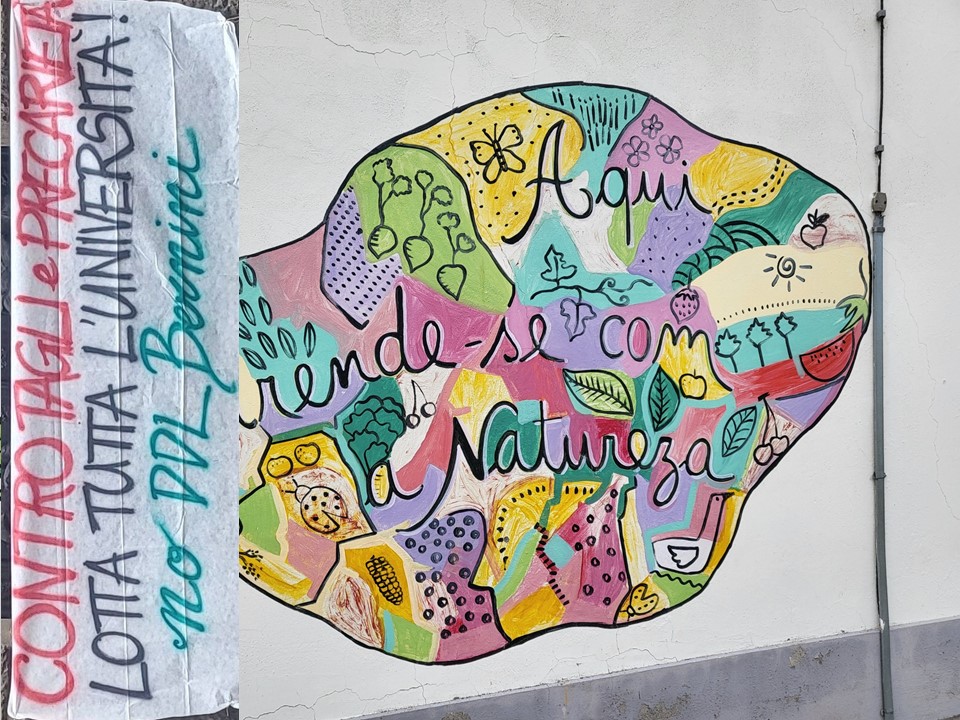 CONTRO TAGLI e PRECARIETÀ
LOTTA TUTTA L'UNIVERSITÀ!
no DDL Bernini
Aqui
rende-se com
a Natureza